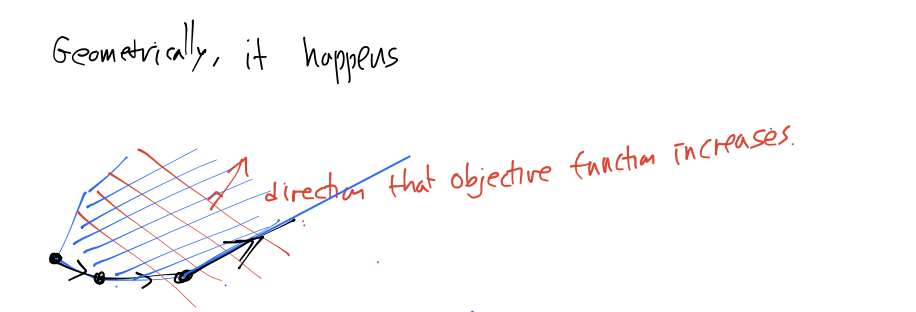 Geometrically, it happens
direction that objective function increases.